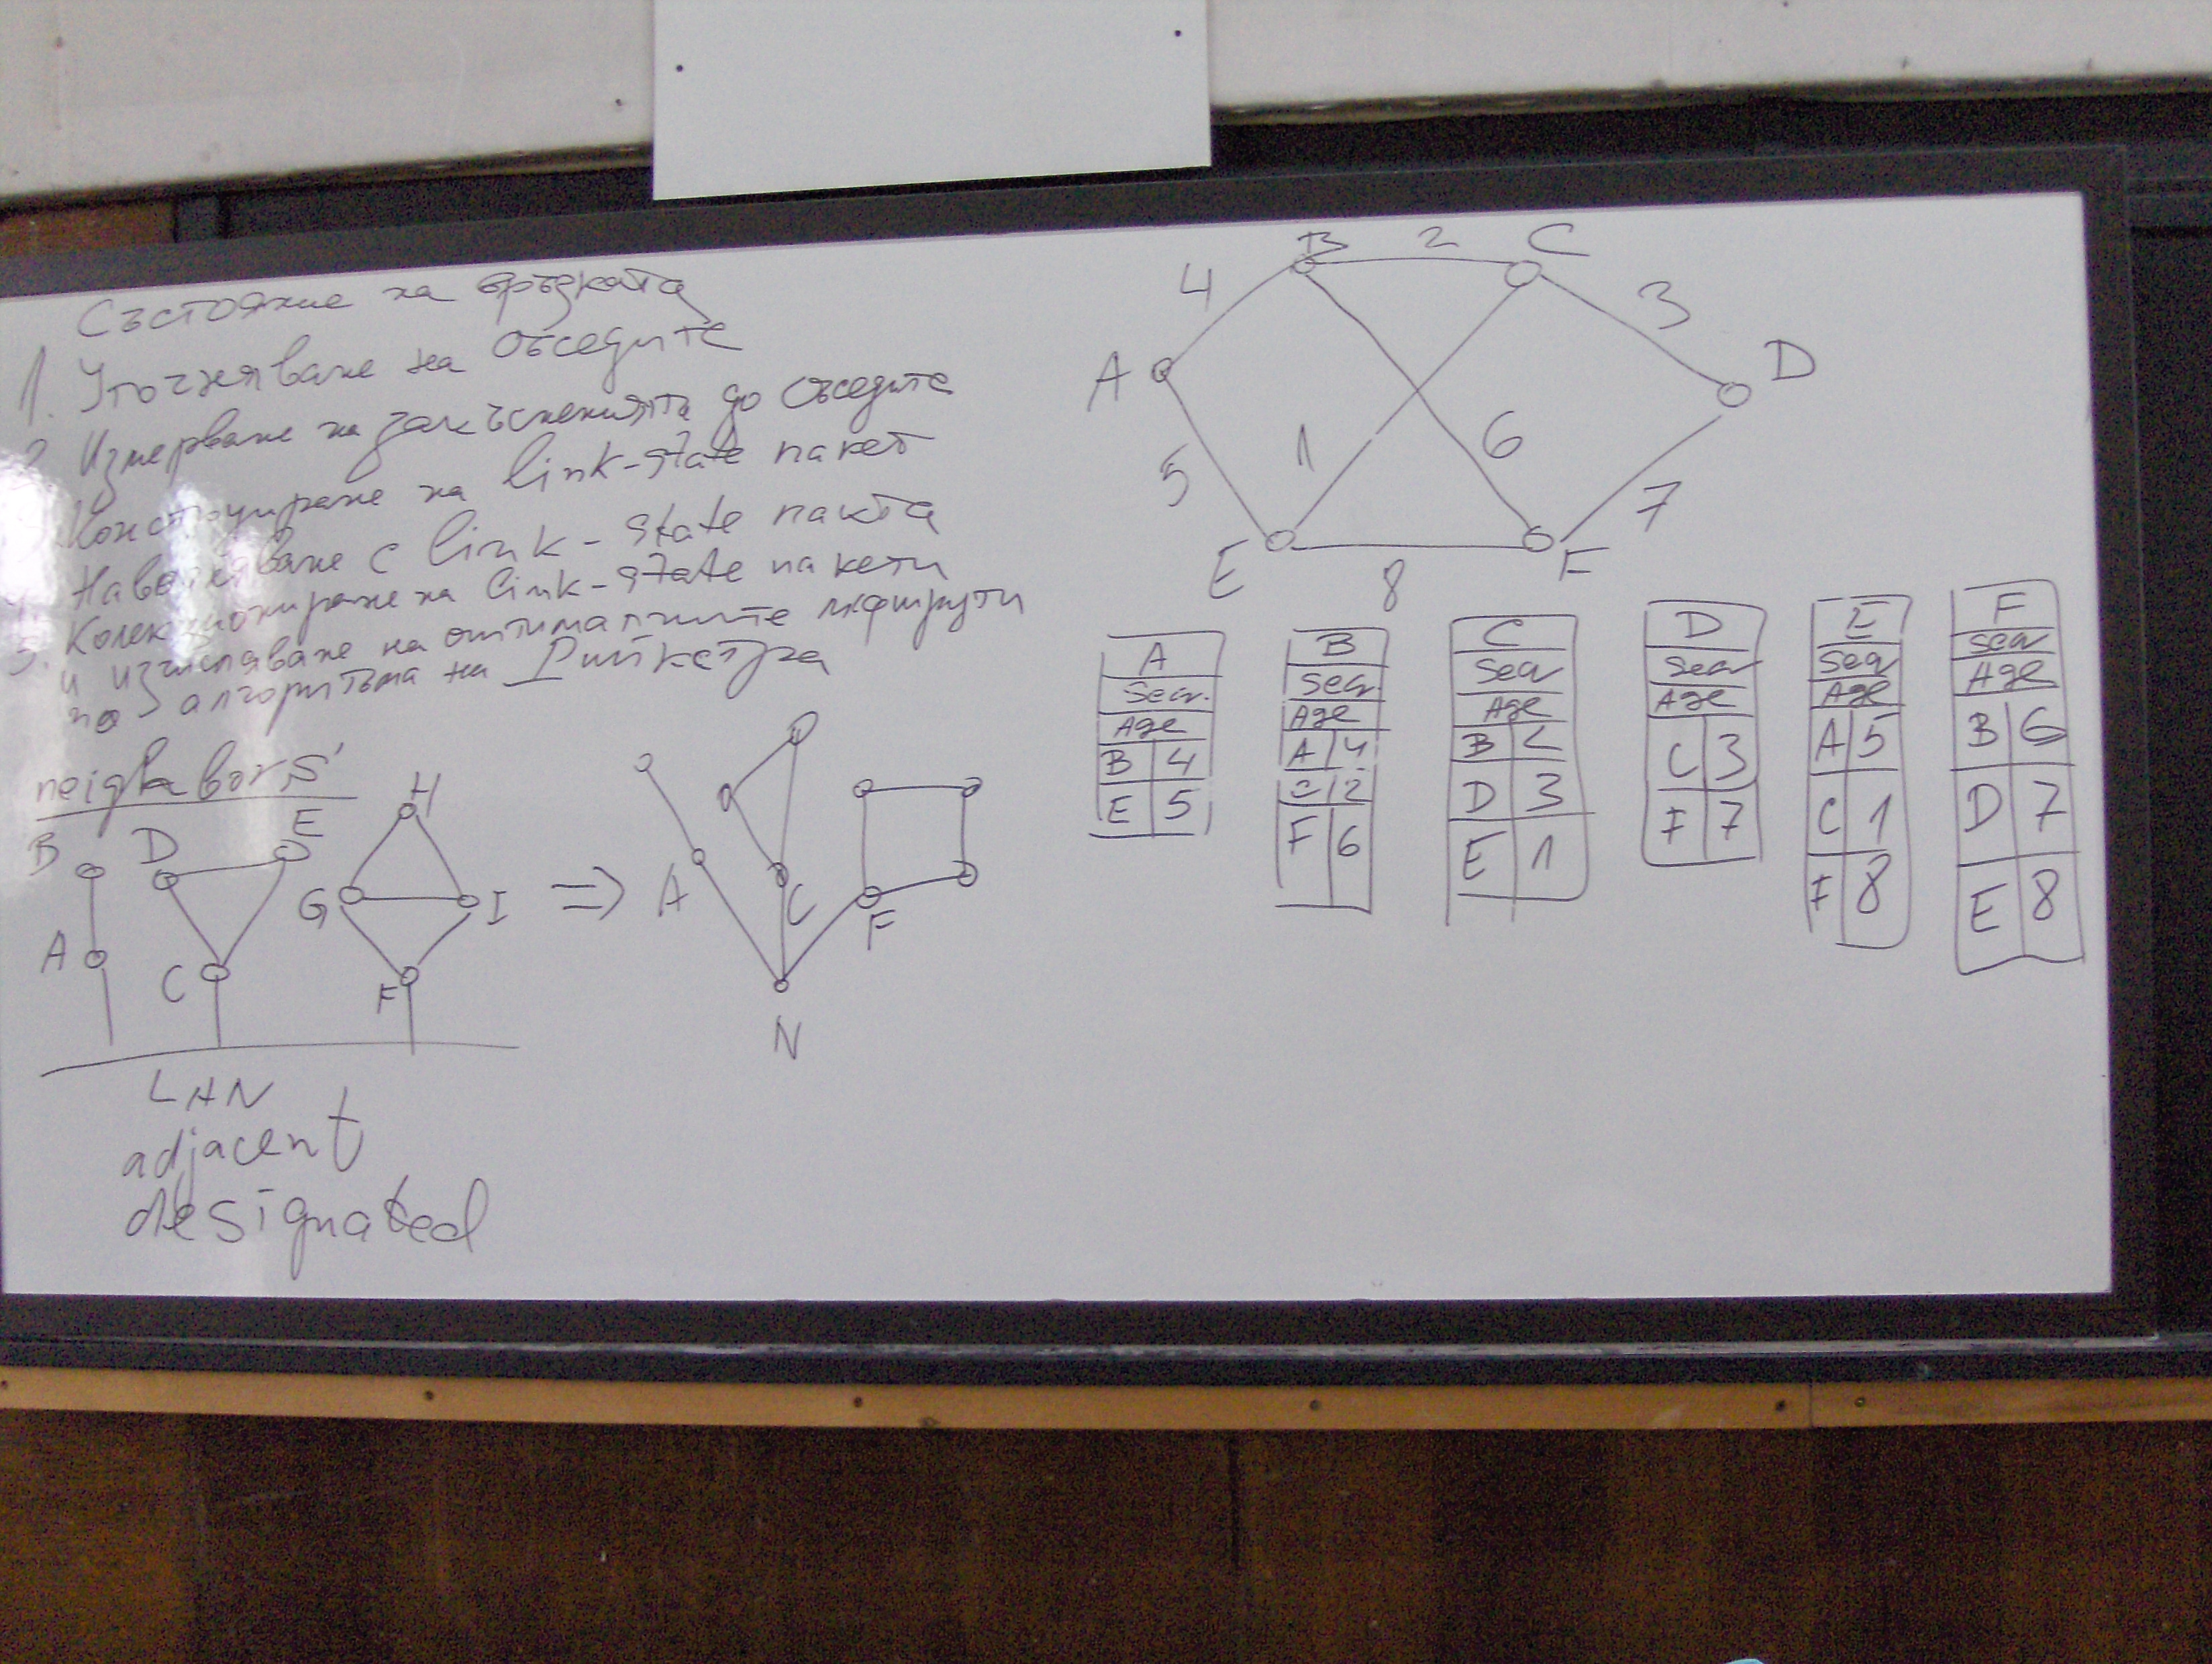 Състояние на връзката
1. Уточняване на съседите
2. Измерване на закъсненията до съседите
3. Конструиране на link-state пакет
4. Наводняване с link-state пакета
5. Колекциониране на link-state пакети
и изчисляване на оптималните маршрути
по алгоритъма на Дийкстра
neighbors'
B D E H
A C G I F
LAN
adjacent
designated
=> A C F
N
B 2 C
4 3
A D
5 1 6 7
E 8 F
A
Seq.
Age
B 4
E 5
B
Seq.
Age
A 4
C 2
F 6
C
Seq
Age
B 2
D 3
E 1
D
Seq
Age
C 3
F 7
E
Seq
Age
A 5
C 1
F 8
F
Seq
Age
B 6
D 7
E 8